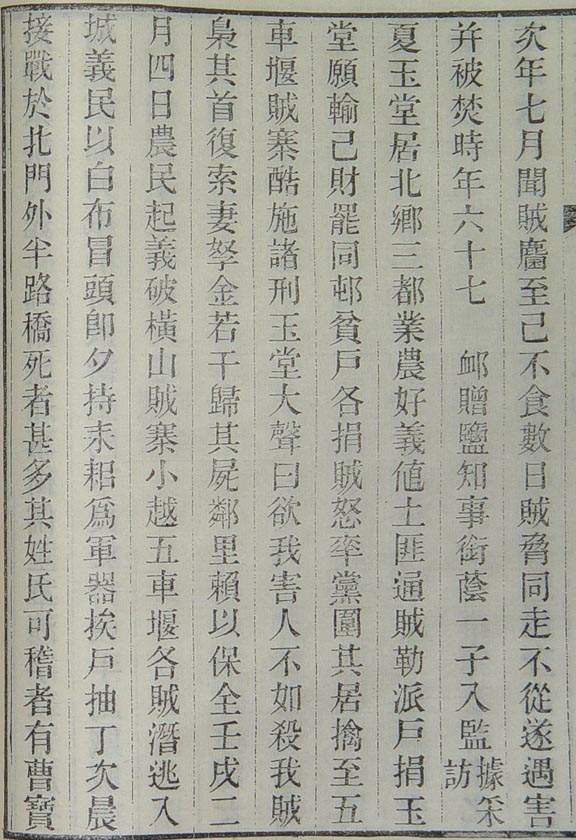 次年七月聞賊麕至己不食數日賊脅同走不從遂遇害
并被焚時年六十七　䘏贈鹽知事銜蔭一子入監據采訪
夏玉堂居北鄉三都業農好義値土匪通賊勒派戶捐玉
堂願輸己財罷同邨貧戶各捐賊怒率黨圍其居擒至五
車堰賊寨酷施諸刑玉堂大聲曰欲我害人不如殺我賊
梟其首復索妻孥金若干歸其屍鄰里賴以保全壬戌二
月四日農民起義破橫山賊寨小越五車堰各賊潛逃入
城義民以白布冒頭卽夕持耒耜爲軍器挨戶抽丁次晨
接戰於北門外半路橋死者甚多其姓氏可稽者有曹寶